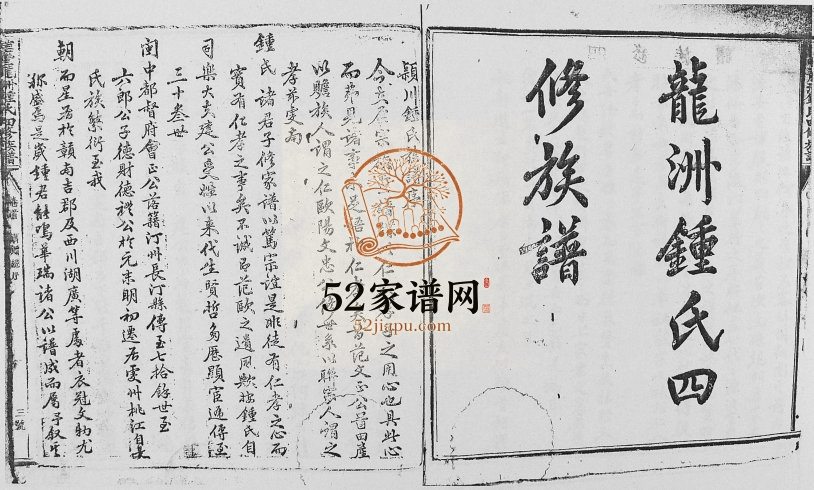 龍洲鍾氏四
修族譜
潁川鍾氏族譜序
之用心也具此心
而莫見諸事不足語於仁
范文正公置田產
以贍族人謂之仁歐陽文忠
世系以聯族人謂之
孝茲雩南
鍾氏諸君子修家譜以篤宗誼是非徒有仁孝之心而
實有仁孝之事矣不誠即范歐之遺風歟按鍾氏自
司樂大夫建公受姓以來代生賢哲多歷顯宦遞傳至
三十叁世
閩中都督府會正公落籍汀州長汀縣傳至七拾餘世至
六郎公子德財德禮公於元末明初遷居雩州桃江自
氏族繁衍至我
朝而星居於贛南吉郡及西川湖廣等處者衣冠文物尤
稱盛焉是歲鍾君能鳴華瑞諸公以譜成而屬予叙
三號
52家谱网
52jiapu.com